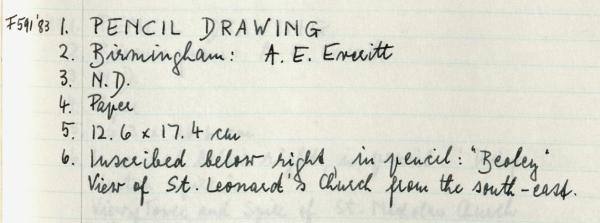 F591'83 1. PENCIL DRAWING
2. Birmingham: A. E. Everitt
3. N.D.
4. Paper
5. 12.6 x 17.4 cm
6. Inscribed below right, in pencil: "Beoley"
View of St. Leonard's Church from the south-east.